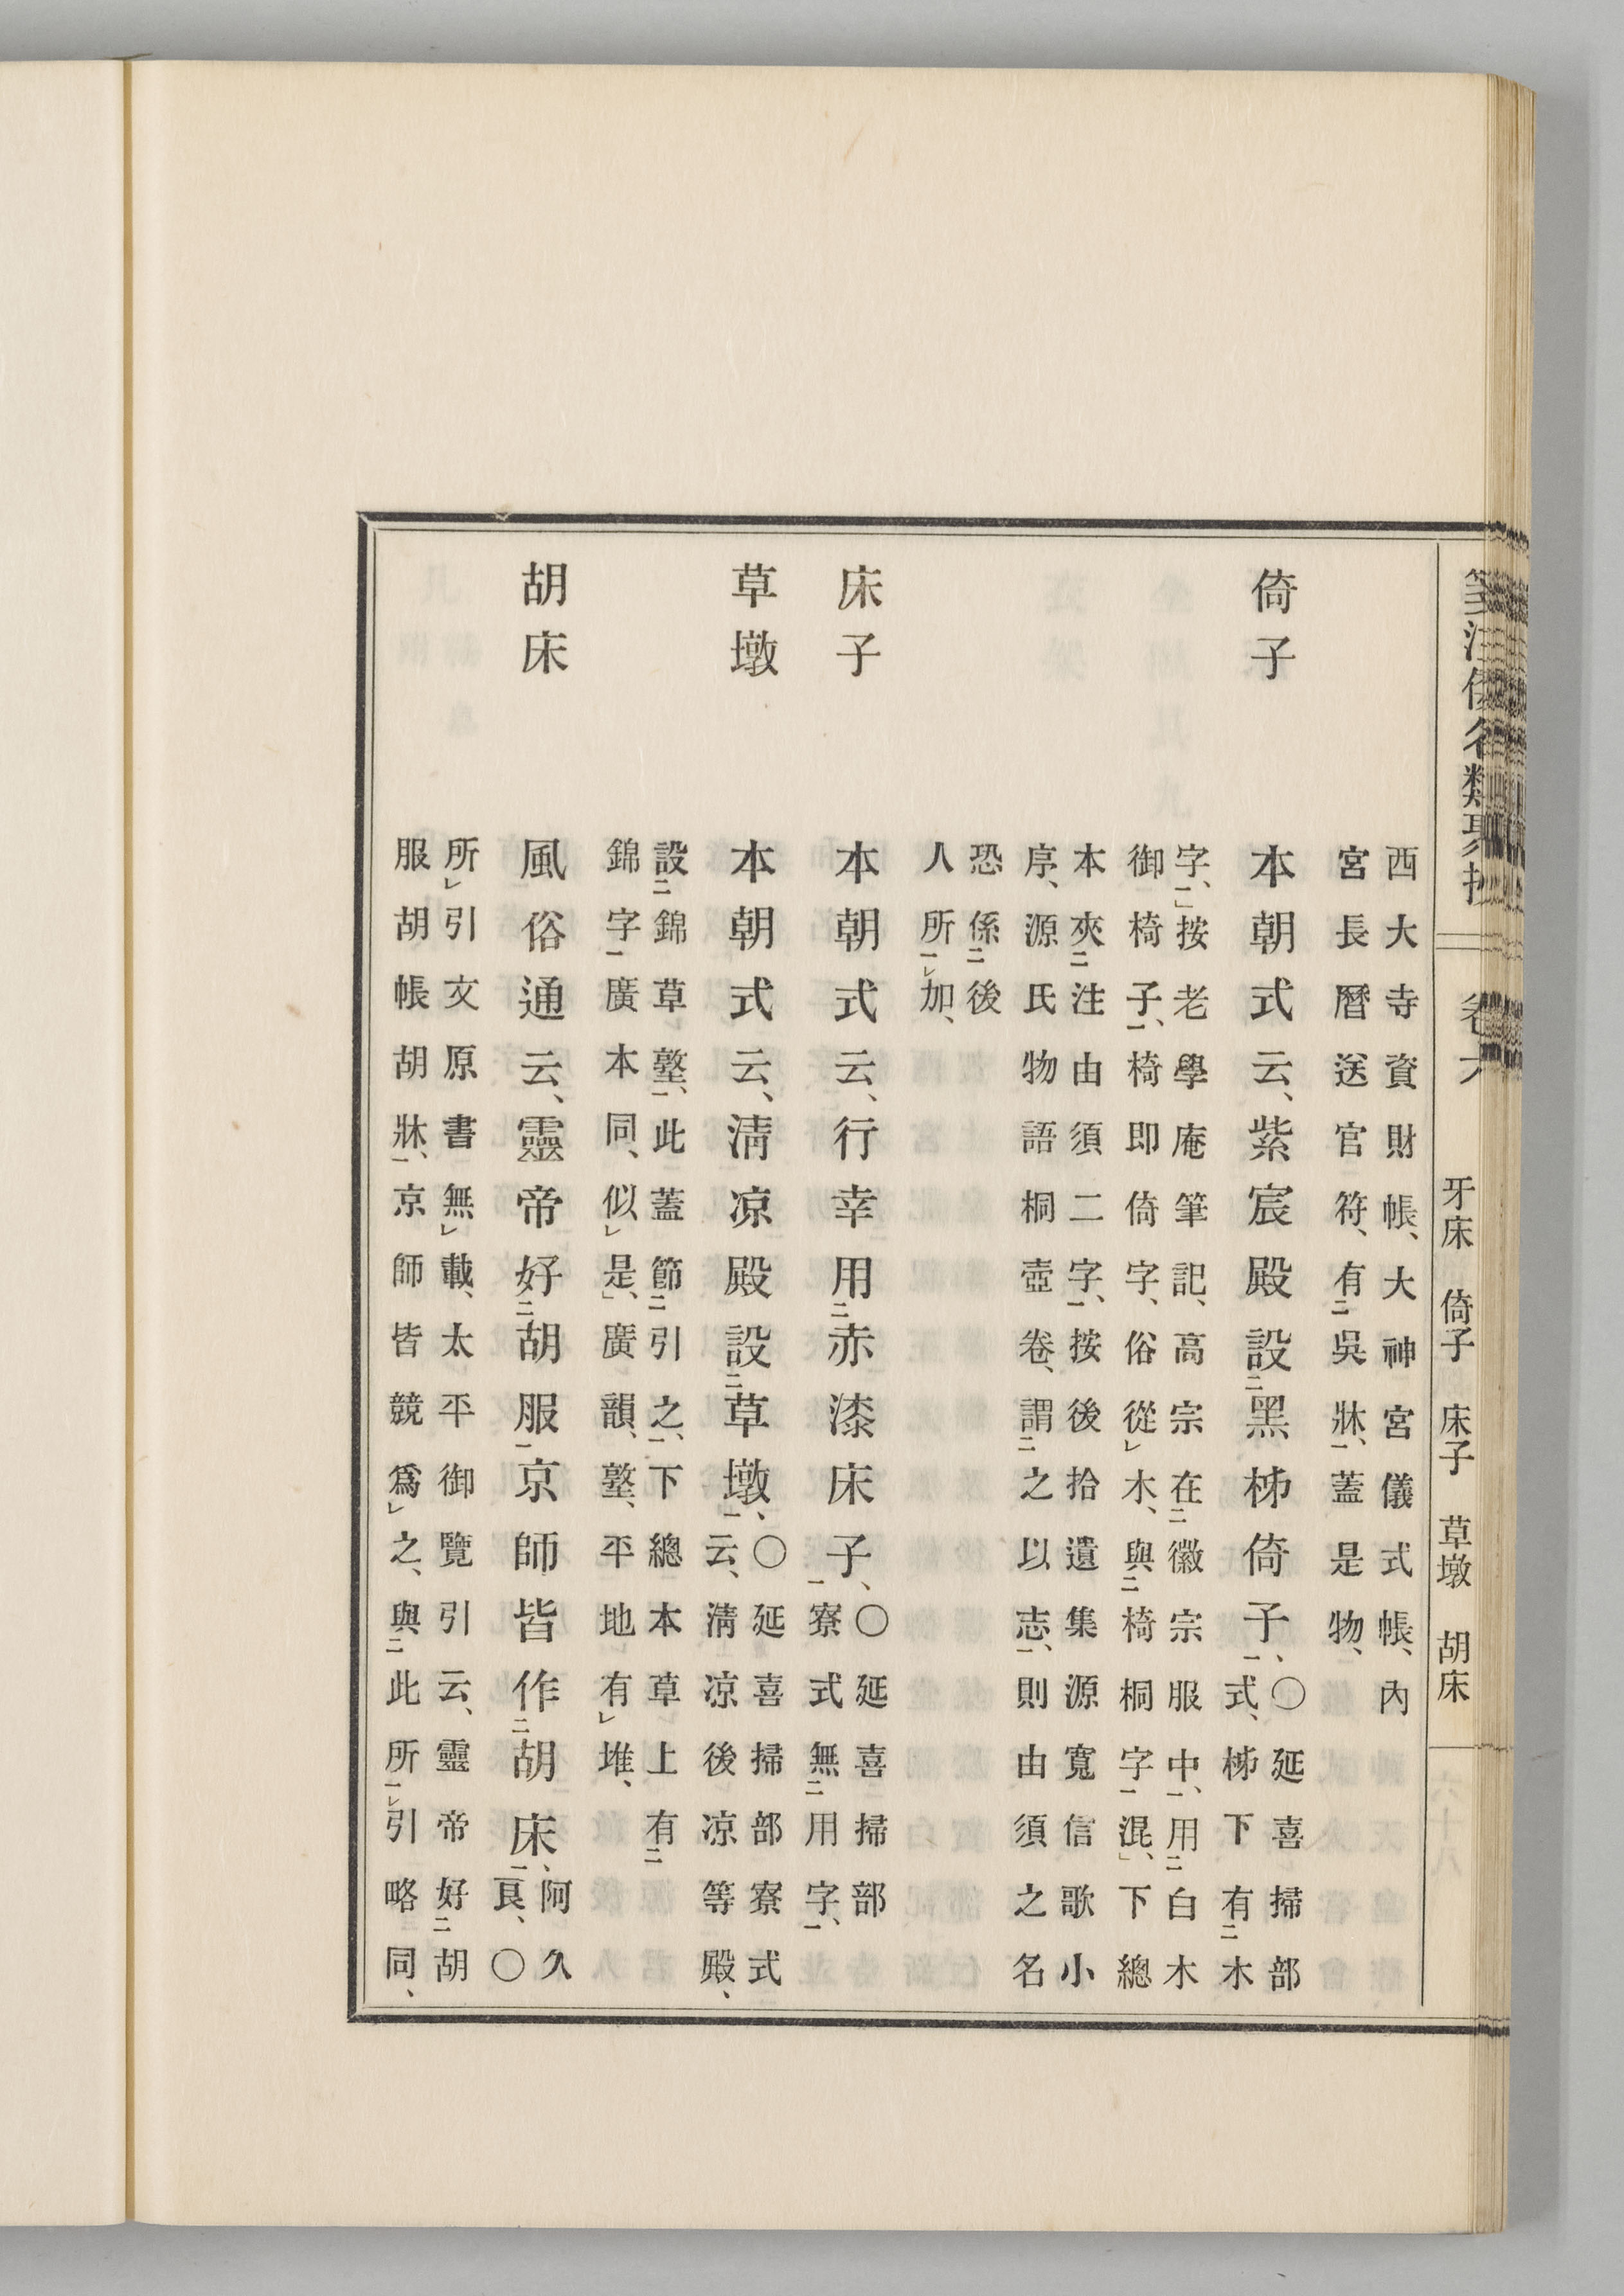 類聚
牙床 倚子 床子 草墩 胡床
西大寺資財帳、大神宮儀式帳、內
宮長曆送官符、有二吳牀一、蓋是物、
倚子
本朝式云、紫宸殿設二黑柹倚子一、
○延喜掃部
式、柹下有二木
字一、」按老學庵筆記、高宗在二徽宗服中一、用二白木
御椅子一、椅即倚字、俗從レ木、與二椅桐字一混、」下總
本夾二注由須二字一、按後拾遺集源寬信歌小
序、源氏物語桐壺卷、謂二之以志一、則由須之名
恐係二後
人所一レ加、
床子
本朝式云、行幸用二赤漆床子一、
○延喜掃部
寮式無二用字一、
草墩
本朝式云、淸凉殿設二草墩一、
○延喜掃部寮式
云、淸凉後凉等殿、
設二錦草墪一、此蓋節二引之一、下總本草上有二
錦字一廣本同、似レ是、」廣韻、墪、平地有レ堆、
胡床
風俗通云、靈帝好二胡服一京師皆作二胡床一、
阿久
良、○
所レ引文原書無レ載、太平御覽引云、靈帝好二胡
服胡帳胡牀一、京師皆競爲レ之、與二此所一レ引略同、